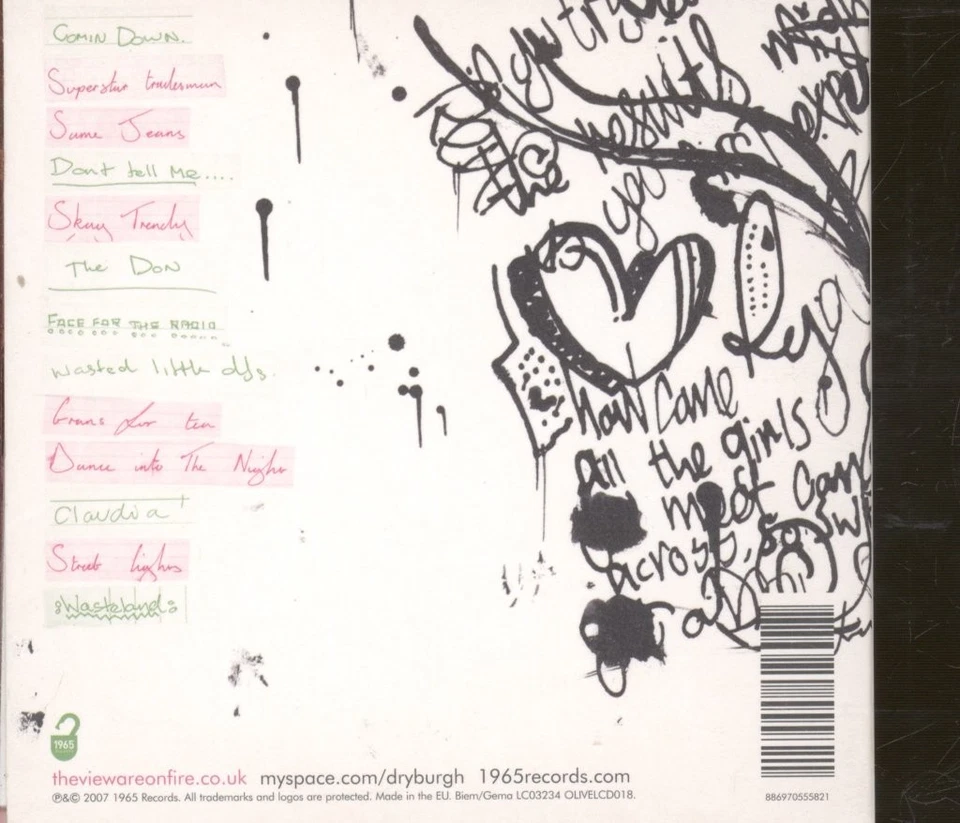 Comin Down.
Superstar tradesman
Same Jeans
Dont tell Me....
Skag Trendy
The Don
FACE FOR THE RADIO
wasted little djs.
Grans for tea
Dance into The Night
Claudia
Street lights
Wasteland
if you
the results
you
how come
all the girls
meet
across,
1965
theviewareonfire.co.uk myspace.com/dryburgh 1965records.com
℗&© 2007 1965 Records. All trademarks and logos are protected. Made in the EU. Biem/Gema LC03234 OLIVELCD018.
886970555821